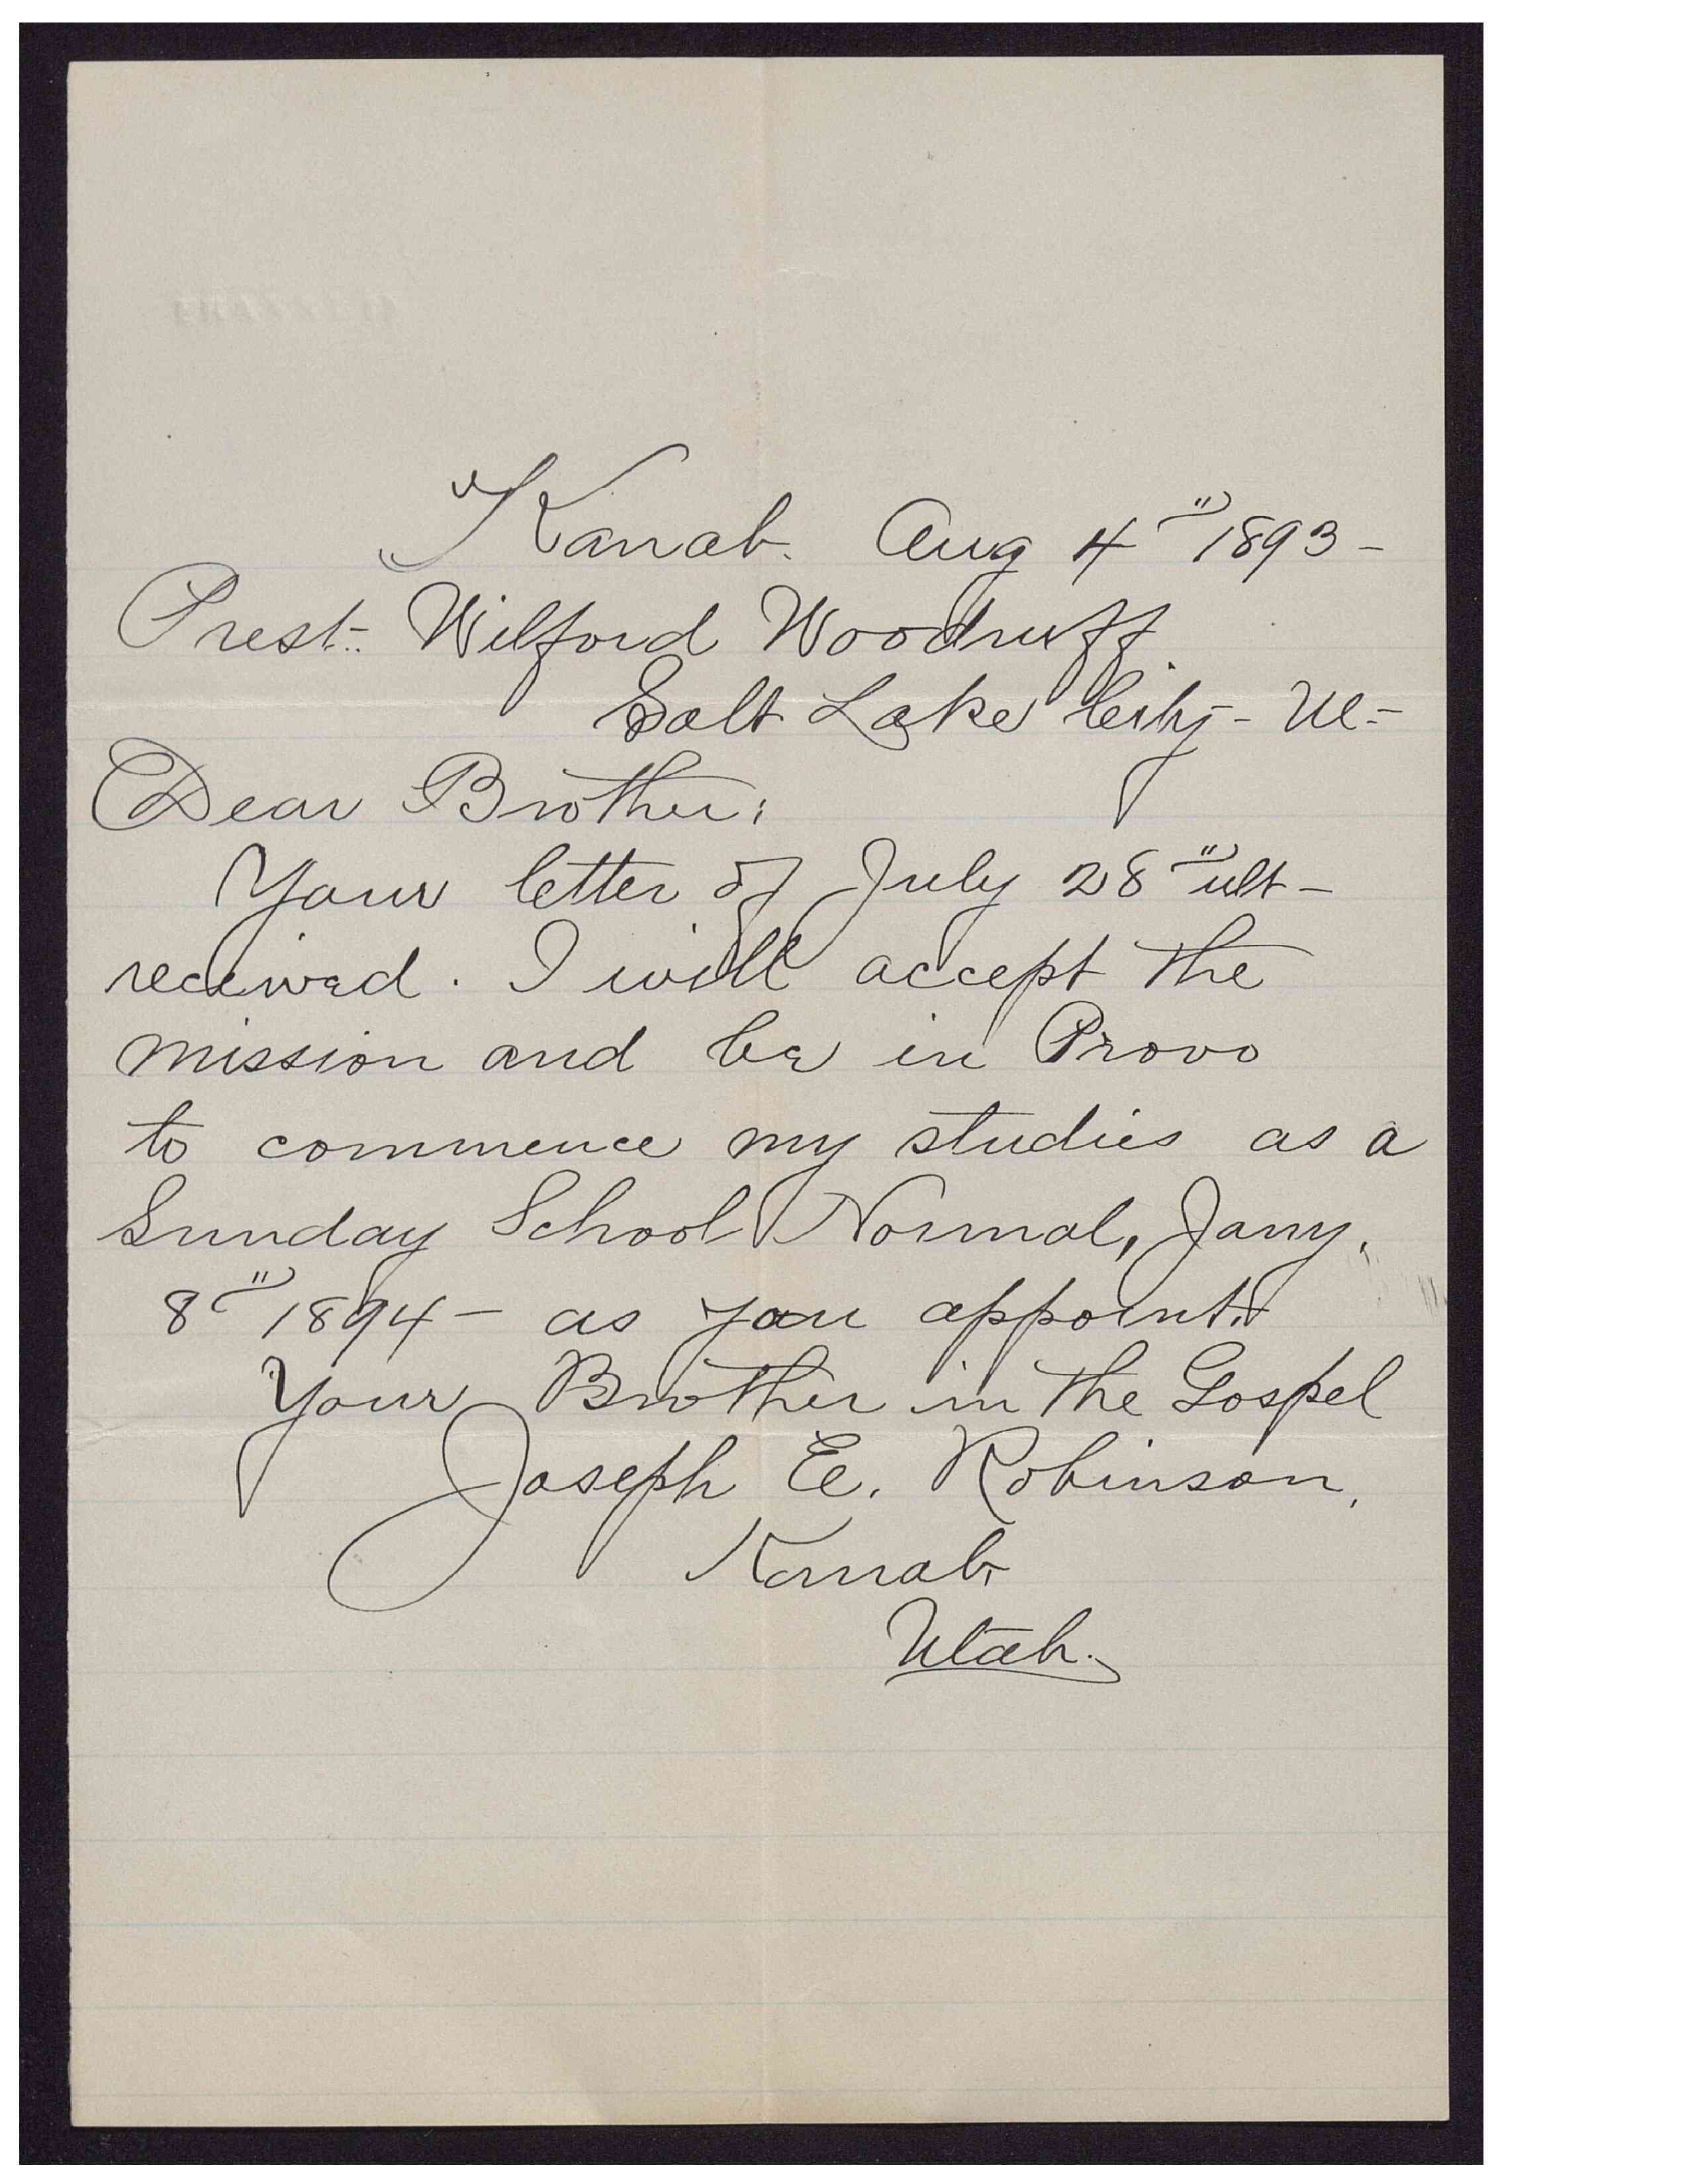 Kanab. Aug 4" 1893-
Prest. Wilford Woodruff.
Salt Lake City- Ut-
Dear Brother:
Your letter of July 28" ult-
received. I will accept the
mission and be in Provo
to commence my studies as a
Sunday School Normal, Jany.
8" 1894- as you appoint.
Your Brother in the Gospel
Joseph E. Robinson,
Kanab,
Utah.